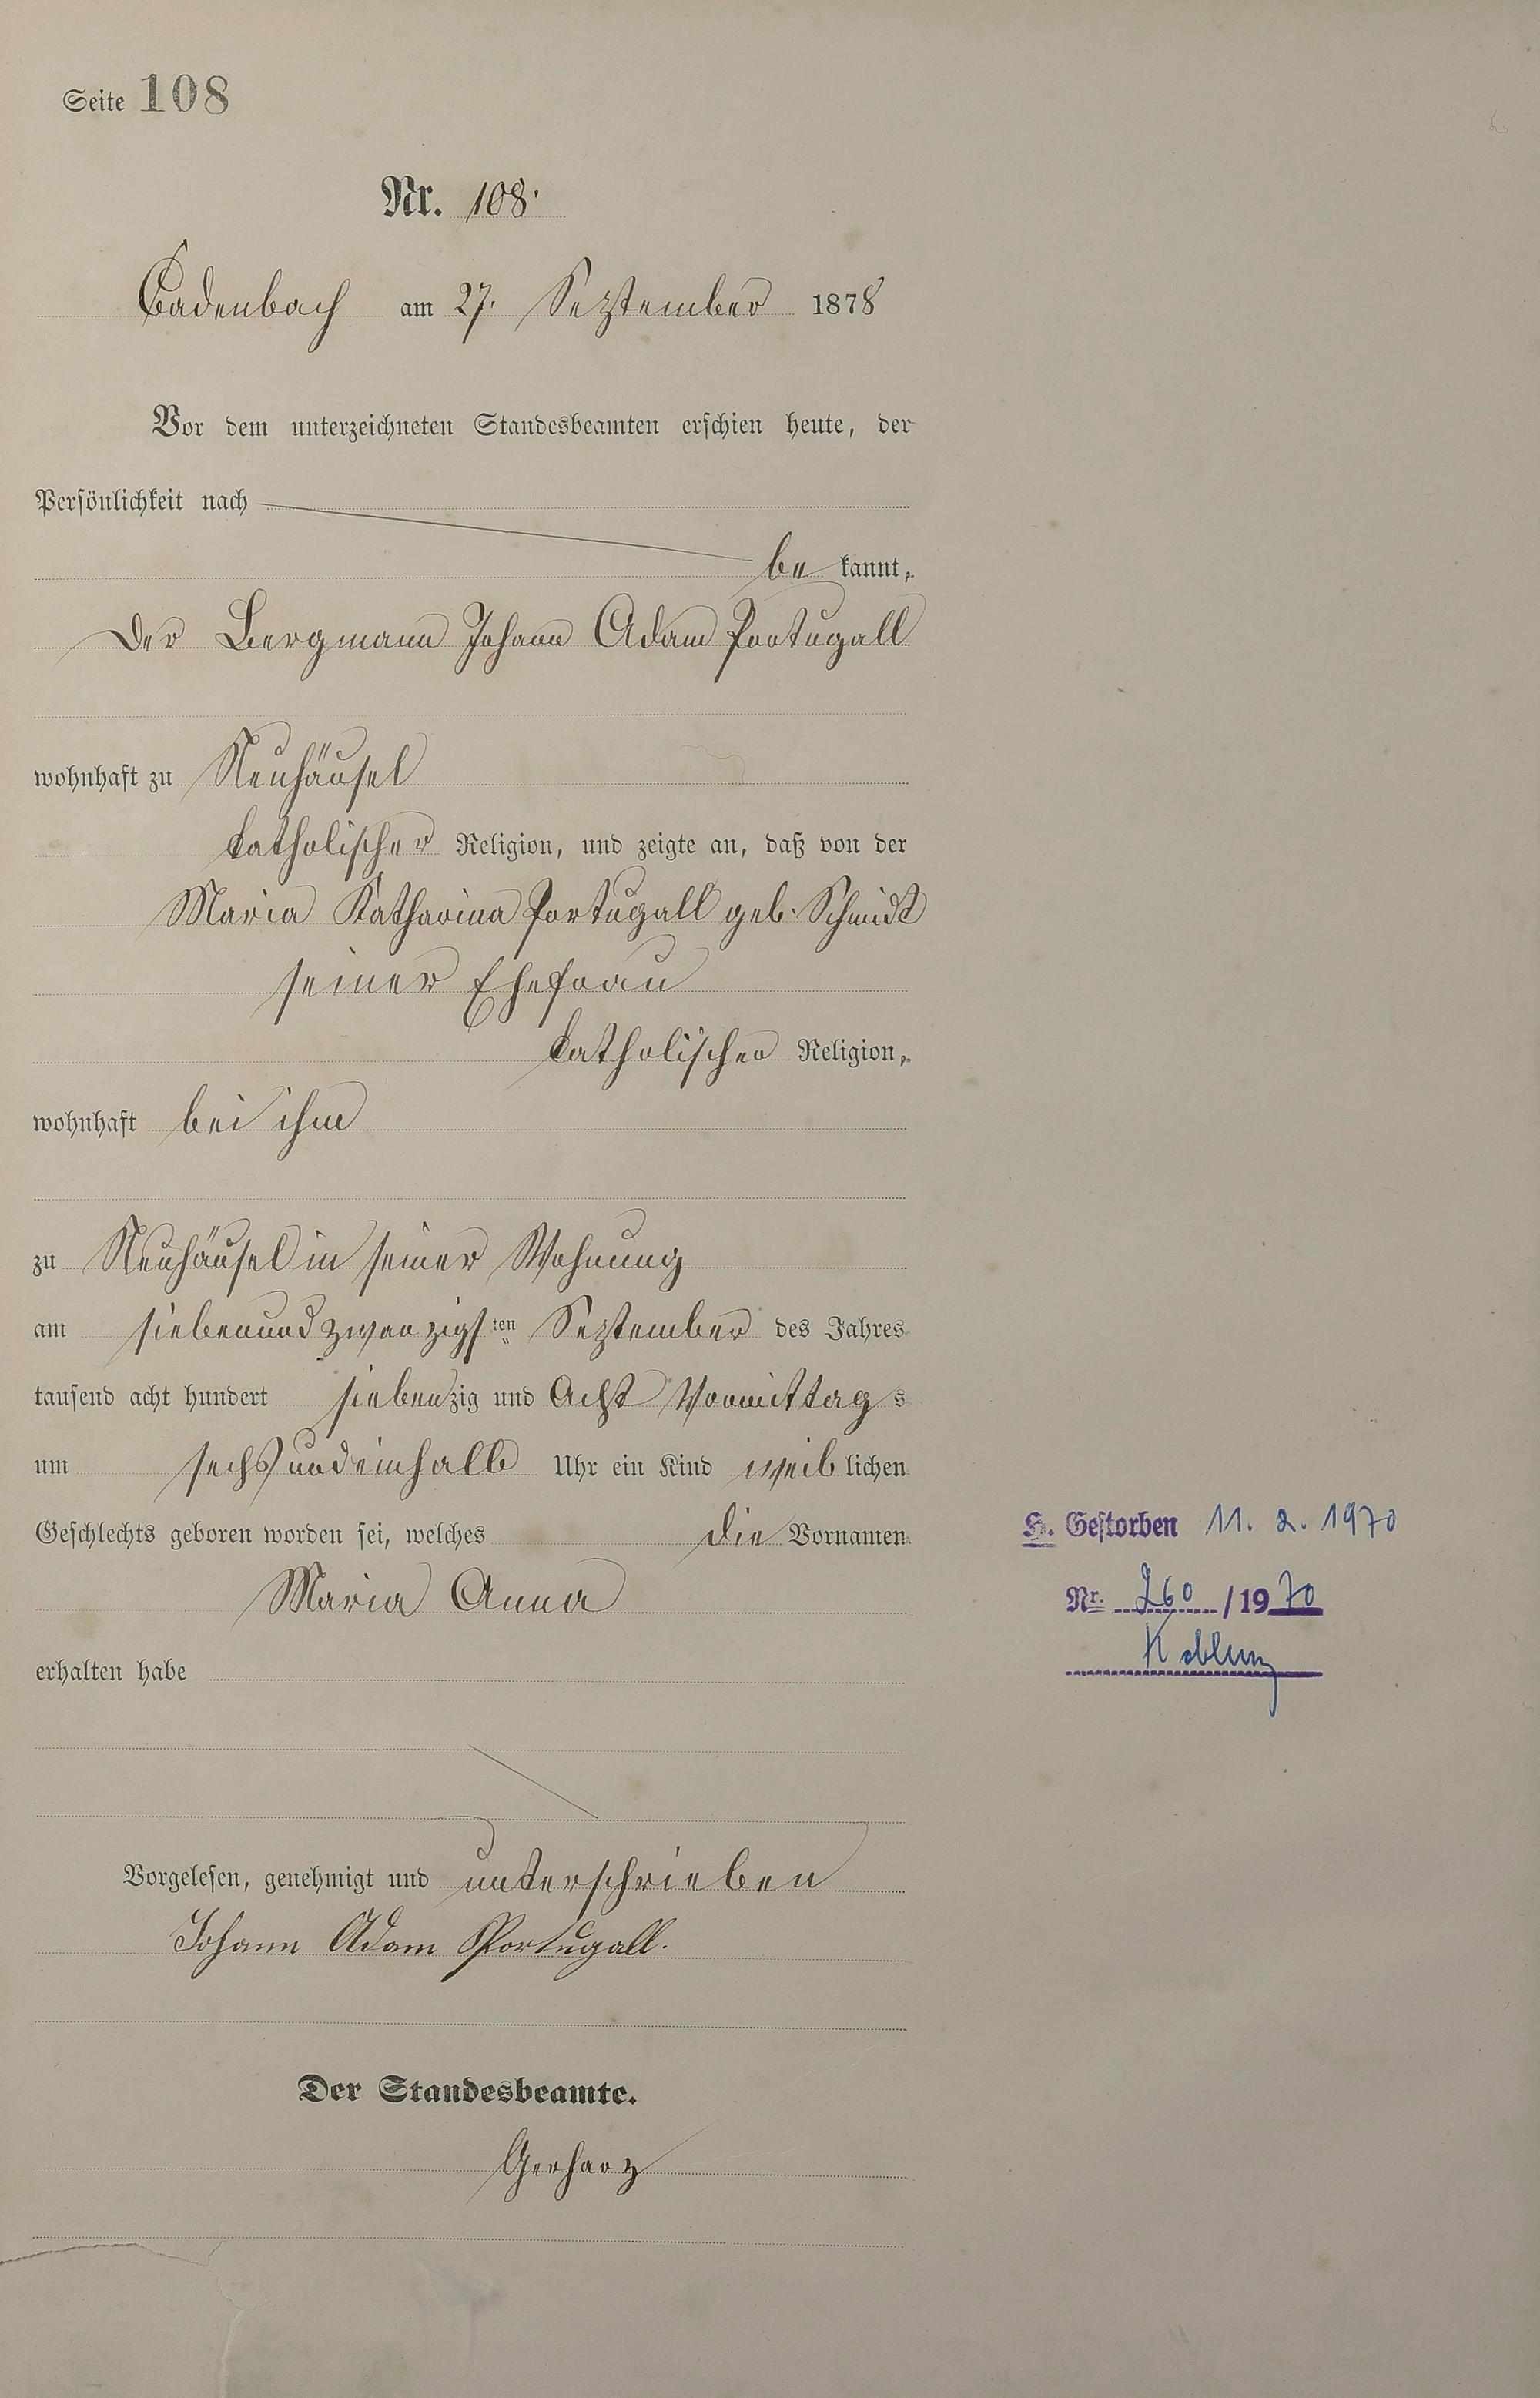 Seite 108
Nr. 108.
Cadenbach am 27. September 1878
Vor dem unterzeichneten Standesbeamten erschien heute, der
Persönlichkeit nach
be kannt,
Der Bergmann Johann Adam Portugall
wohnhaft zu Neuhäusel
katholischer Religion, und zeigte an, daß von der
Maria Katharina Portugall geb. Schmidt
seiner Ehefrau
katholischer Religion,
wohnhaft bei ihm
zu Neuhäusel in seiner Wohnung
am siebenundzwanzigsten September des Jahres
tausend acht hundert siebenzig und Acht Vormittags
um sechs undeinhalb Uhr ein Kind weiblichen
Geschlechts geboren worden sei, welches die Vornamen
Maria Anna
erhalten habe
Vorgelesen, genehmigt und unterschrieben
Johann Adam Portugall.
Der Standesbeamte.
Gerharz
H. Gestorben 11. 2. 1970
Nr. 260 /1970
Koblenz